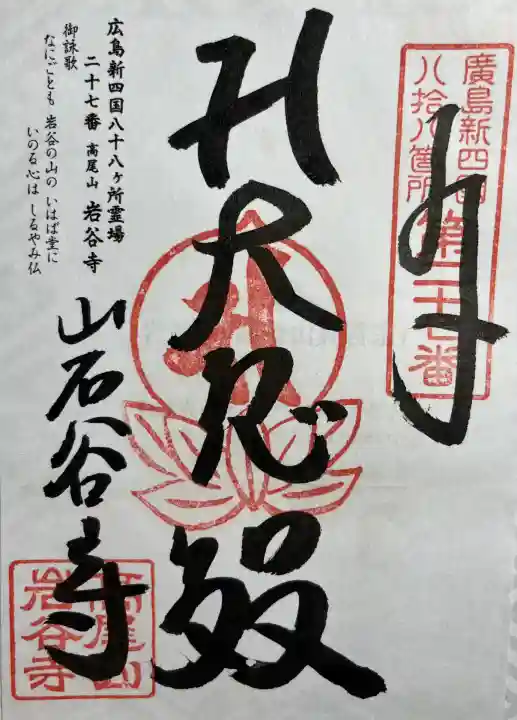 廣島新四国
八拾八箇所
第二十七番
大悲殿
広島新四国八十八ヶ所霊場
二十七番 高尾山 岩谷寺
御詠歌
なにごとも 岩谷の山の いはば堂に
いのる心は しるやみ仏
岩谷寺
高尾山
岩谷寺